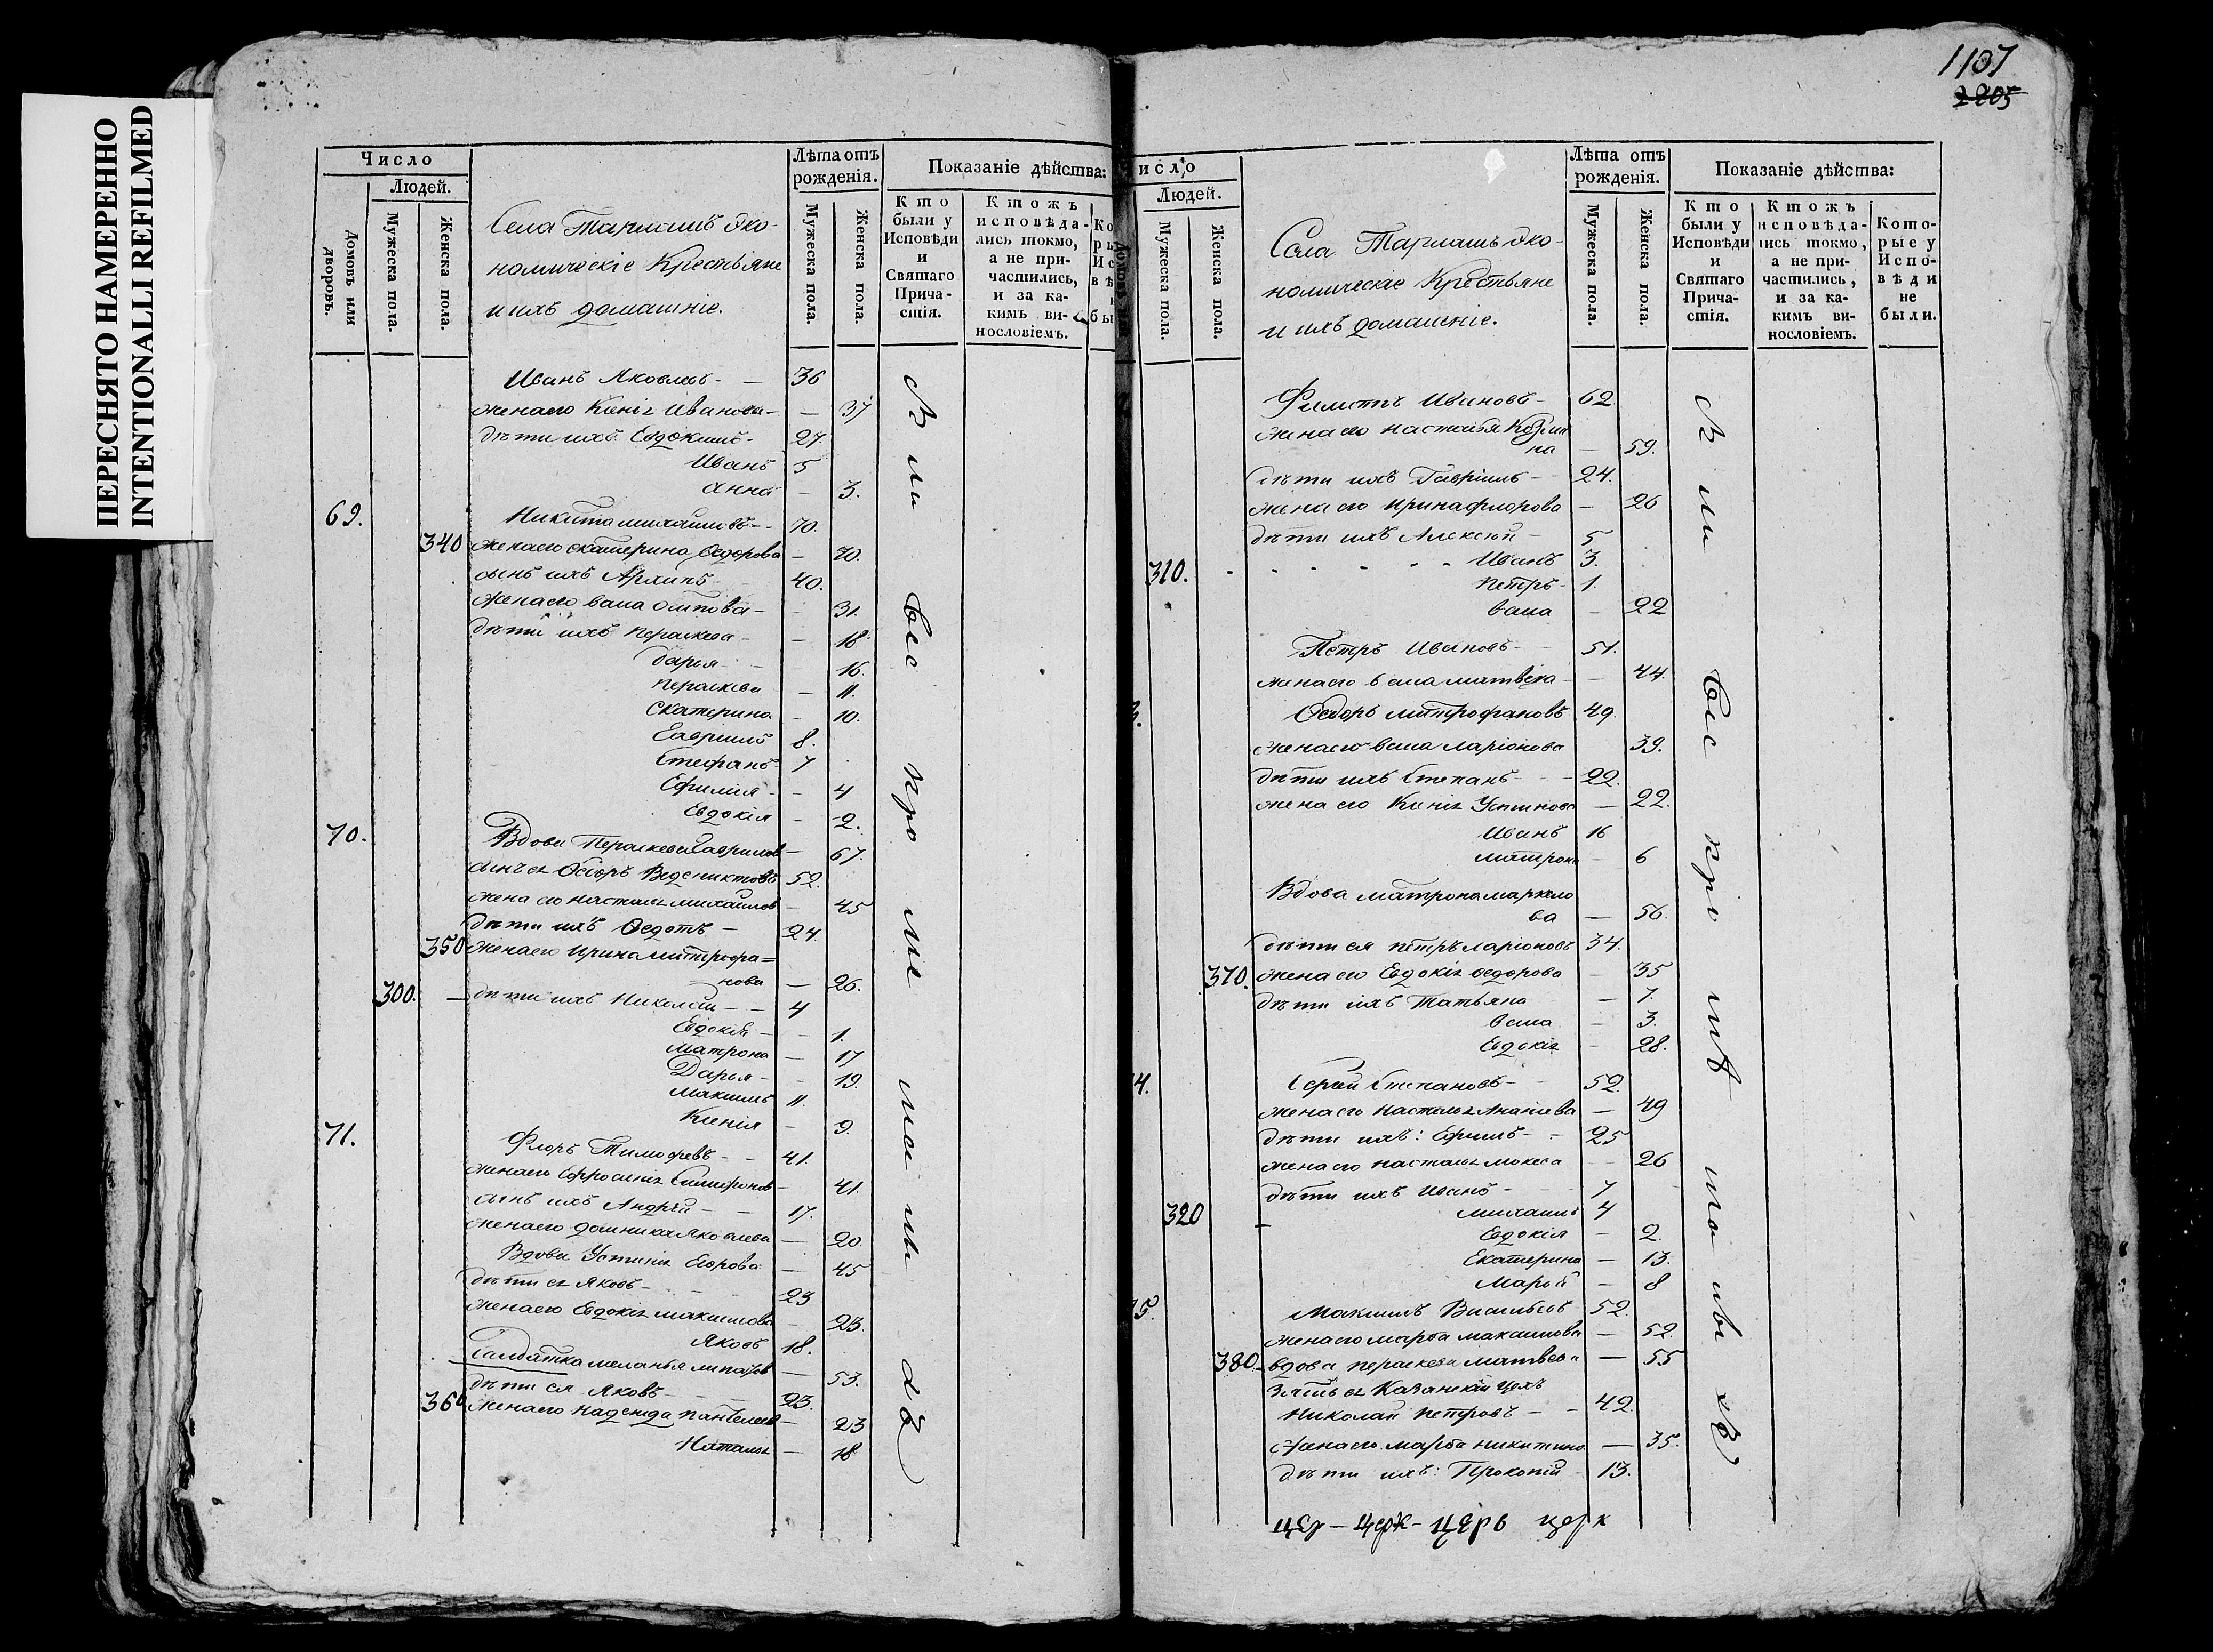 ПЕРЕСНЯТО НАМЕРЕННО
INTENTIONALLI REFILMED
Число
Людей.
Домовъ или дворовъ.
Мужеска пола.
Женска пола.
Села Тарлашъ Эко-
номическіе Крестьяне
и ихъ домашніе.
Лѣта отъ рожденія.
Мужеска пола.
Женска пола.
Показаніе дѣйства:
Кто были у Исповѣди и Святаго Прича-стія.
Ктожъ исповѣда-лись токмо, а не при-частились, и за ка-кимъ ви-нословіемъ.
Иванъ Яковлевъ - — 36
жена его Ксенія Иванова - — 37
дѣти ихъ Евдокимъ - 27.
Иванъ 5
Анна - 3.
69. Никита Михайловъ - 70.
340 жена его Екатерина Ѳедорова - 70.
сынъ ихъ Архипъ - 40.
жена его Васса Осипова - 31.
дѣти ихъ Параскева - 18
Дарья - 16.
Параскева - 11.
Екатерина - 10.
Гавриилъ 8.
Стефанъ 7
Ефимія - 4
Евдокія - 2.
70. Вдова Параскева Гаврилов - 67.
сынъ ея Ѳедоръ Ведениктовъ 52.
жена его Настасья Михайлов - 45
дѣти ихъ Ѳедотъ - 24.
350 жена его Ирина Митрофа=
нова — 26.
300. — дѣти ихъ Николай - - 4
Евдокія - 1.
Матрона - 17
Дарья - 19.
Максимъ 11.
Ксенія - 9.
71. Флоръ Тимофеевъ - - 41.
жена его Ефросинія - 41.
сынъ ихъ Андрей - - 17.
жена его Домникія Яковлева - 20
Вдова Устинія Егорова - 45
дѣти ея Яковъ - 23
жена его Евдокія Максимова - 23.
Яковъ 18.
Салдатка Меланья - 53.
дѣти ея Яковъ - 23.
360 жена его Надежда Пантелеев - 23
Наталья - 18
Вси всѣ
про ме
1107
2205
исло
Людей.
Мужеска пола.
Женска пола.
Села Тарлашъ Эко-
номическіе Крестьяне
и ихъ домашніе.
Лѣта отъ рожденія.
Мужеска пола.
Женска пола.
Показаніе дѣйства:
Кто были у Исповѣди и Святаго Прича-стія.
Ктожъ исповѣда-лись токмо, а не при-частились, и за ка-кимъ ви-нословіемъ.
Кото-рые у Испо-вѣди не были.
Филиппъ Ивановъ - 62
жена его Настасья Козмин
на — 59.
дѣти ихъ Гавріилъ - 24.
жена его Ирина Флорова - 26
дѣти ихъ Алексѣй - 5
310. Иванъ 3.
Петръ - 1.
Васса - 22
Петръ Ивановъ - 51.
жена его Васса Матвѣева - 44.
3. Ѳедоръ Митрофановъ 49.
жена его Васса Ларіонова 39.
дѣти ихъ Степанъ - 22.
жена его Ксенія Устинова — 22.
Иванъ 16
Матрона - 6
Вдова Матрона Маркело
ва — 56.
дѣти ея Петръ Ларіоновъ 34.
370. жена его Евдокія Ѳедорова - 35
дѣти ихъ Татьяна - 7.
Васса - 3.
Евдокія - 28.
4. Сергѣй Степановъ - 52.
жена его Настасья Ананіева — 49
дѣти ихъ: Ефимъ - 25
жена его Настасья Мокеева 26
дѣти ихъ Иванъ - 7
320 Михаилъ 4
Евдокія - 2.
Екатерина - 13.
Марья - 8
5. Максимъ Васильевъ 52.
жена его Марѳа Максимова - 52.
380. вдова Параскева Матвѣева — 55
Зять ея Казанской цехъ
Николай Петровъ - - 42.
жена его Марѳа Никитина — 35.
дѣти ихъ: Прокопій 13.